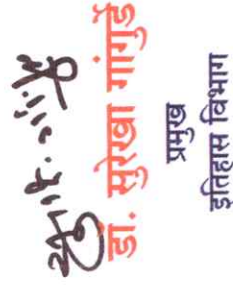 डॉ. सुरेखा गांगुर्डे
प्रमुख
इतिहास विभाग